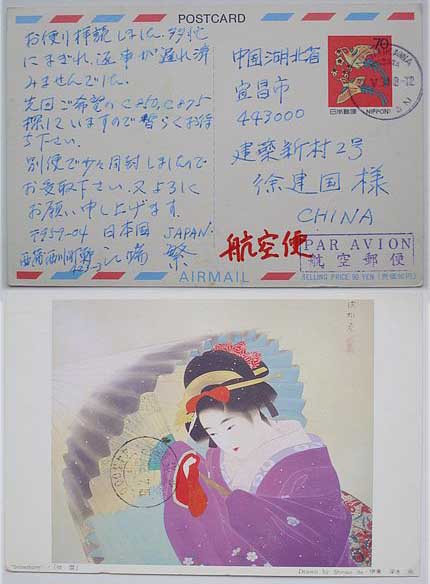 POSTCARD
お便り拝読しました。多忙
にまぎれ、返事が遅れ済
みませんでした。
先回ご希望の C250, C875
探していますので暫らくお待
ち下さい。
別便で少々同封しましたので
お受取下さい。又よろしく
お願い申し上げます。
〒959-04 日本国 JAPAN
西蒲西川町
江端 繁
70
日本郵便 NIPPON
中国湖北省
宜昌市
443000
建築新村2号
徐建国 様
CHINA
航空便
PAR AVION
航空郵便
AIRMAIL
SELLING PRICE 90 YEN
Drawn by Shinsui Ito